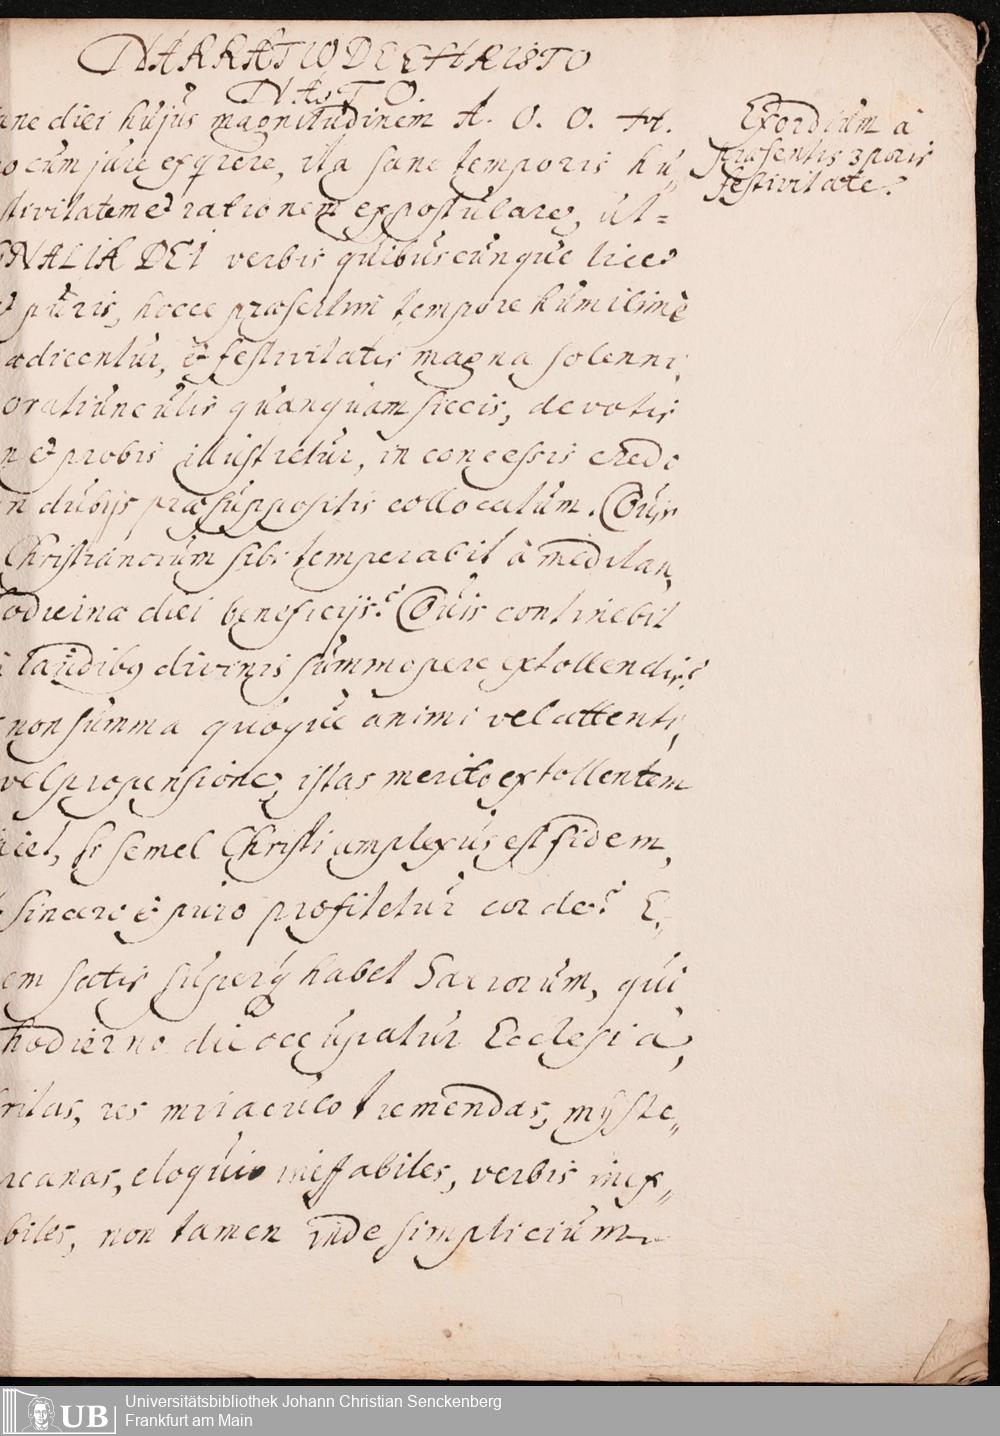 NARRATIO DE CHRISTO
NATO.
ane diei hujus magnitudinem A. O. O. H.
o cum jure exqrere, ita sane temporis hu„
stivitatem et rationem expostulare, ut=
NALIA DEI verbis quibuscunque lice
et puris, hocce præsertim tempore humilime
ædicentur, et festivitatis magna solenni„
oratiunculis quanquam siccis, devotis
n et probis illustretur, in concessis credo
n dubijs præsuppositis collocatum. Quis
Christianorum sibi temperabit à meditan„
odierna diei beneficijs? Quis continebit
laudibq divinis summopere extollendis?
non summa quoque animi vel attenti„
vel propensione, istas merito extollentem
iet, si semel Christi amplexus est fidem,
sincero et puro profitetur corde? E„
em satis superq habet Sacrorum, qui
hodierno die occupatur Ecclesia,
ritas, res miraculo tremendas, myste„
rcanas, eloquio ineffabiles, verbis inex„
biles, non tamen inde simplicium
Exordium à
præsentis 3poris
festivitate.
Universitätsbibliothek Johann Christian Senckenberg
Frankfurt am Main
UB